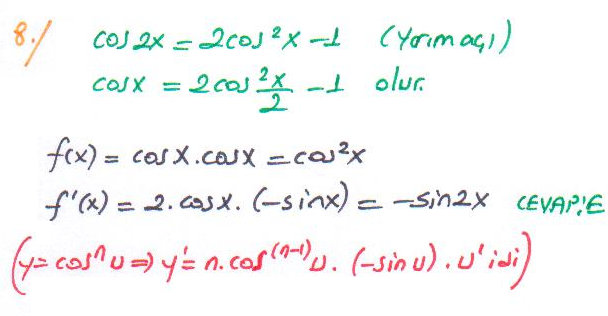 8./ cos2x = 2cos²x - 1 (Yarımaçı)
cosx = 2cos² x/2 - 1 olur.
f(x) = cosx.cosx = cos²x
f'(x) = 2.cosx.(-sinx) = -sin2x CEVAP:E
(y = cosⁿu ⇒ y' = n.cos⁽ⁿ⁻¹⁾u.(-sinu).u' idi)